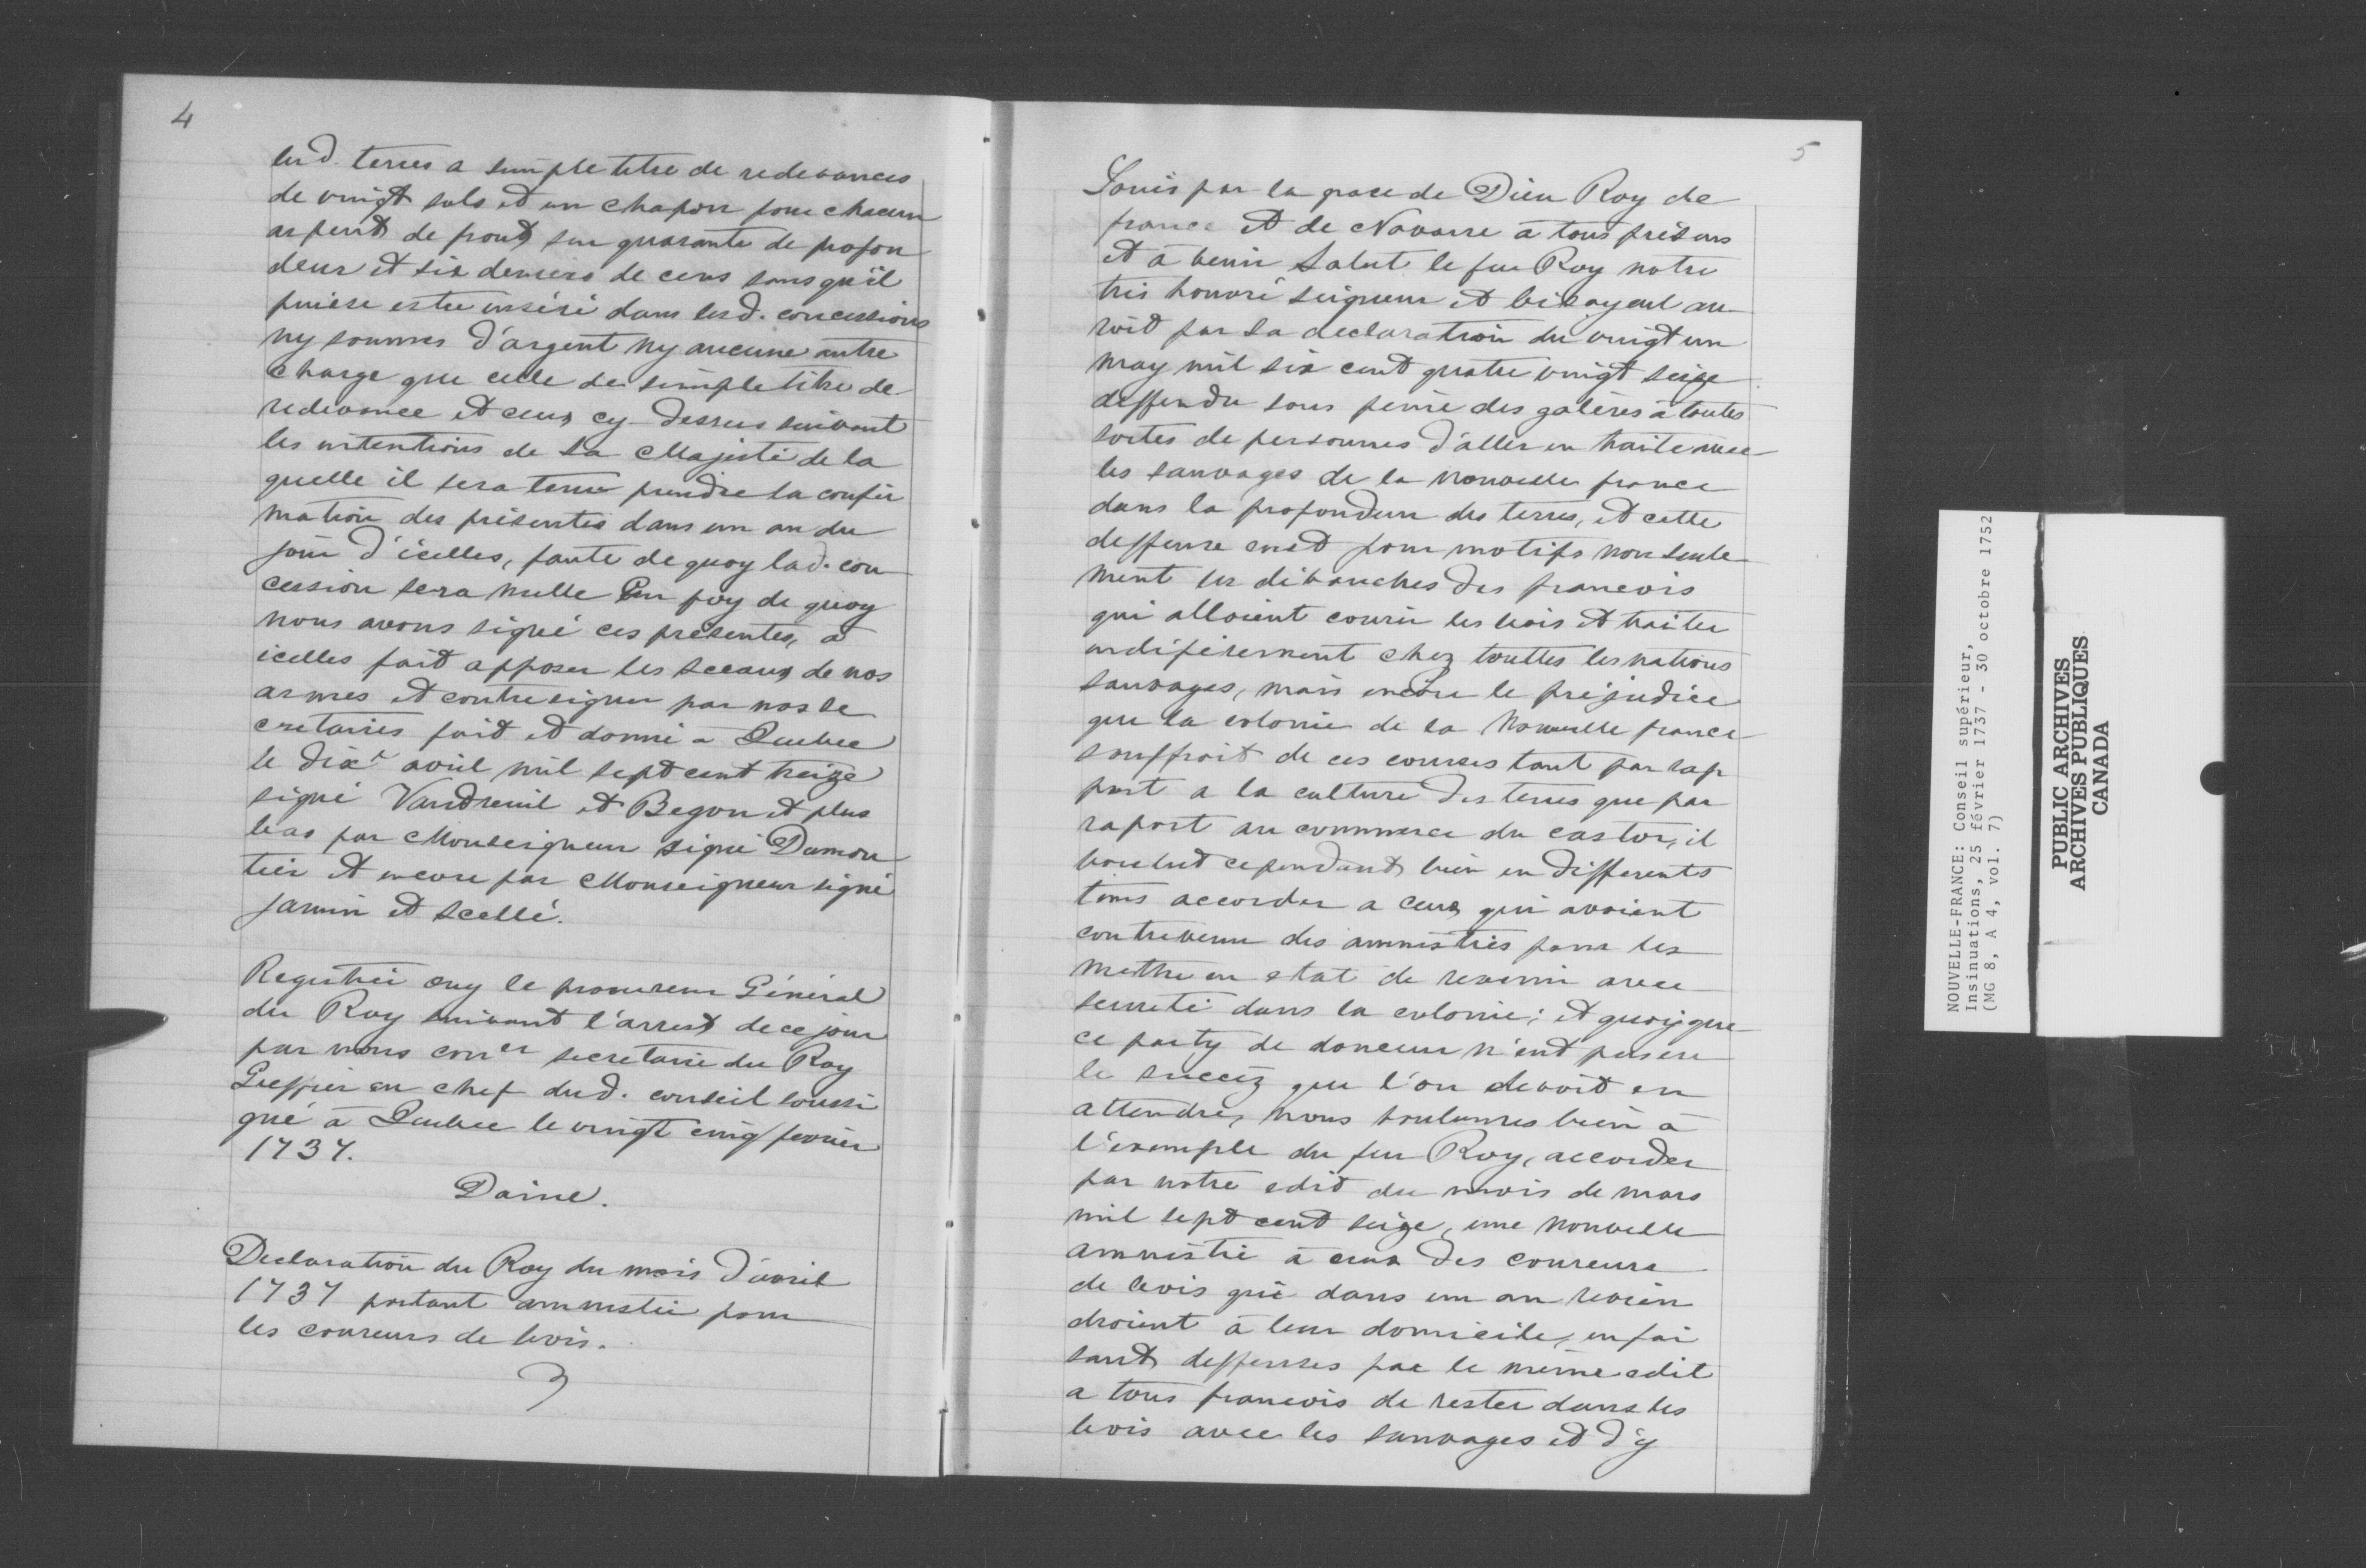 4
lesd. terres a simple titre de redevances
de vingt sols et un chapon pour chacun
arpent de front sur quarante de profon
deur et six deniers de cens sans qu'il
puisse estre inséré dans lesd. concessions
ny sommes d'argent ny aucune autre
charge que celle de simple titre de
redevance et ceux cy-dessus suivant
les intentions de Sa Majesté de la
quelle il sera tenu prendre la confir
mation des présentes dans un an du
jour d'icelles, faute de quoy lad. con
cession sera nulle En foy de quoy
nous avons signé ces présentes, à
icelles fait apposer les sceaux de nos
armes et contresigner par nos se
cretaires fait et donné a Quebec
le dix^e avril mil sept cent treize
signé Vaudreuil et Begon et plus
bas par Monseigneur signé Dumon
tier et encore par Monseigneur signé
Jamin et scellé.
Registrée ouy le procureur Général
du Roy suivant l'arrest de ce jour
par nous con^er secretaire du Roy
Greffier en chef dud. conseil soussi
gné à Quebec le vingt cinq fevrier
1737.
Daine.
Declaration du Roy du mois d'avril
1737 portant amnistie pour
les coureurs de bois.
5
Louis par la grace de Dieu Roy de
france et de Navarre à tous présens
et à venir Salut le feu Roy notre
très honoré seigneur et bisayeul au
roit par sa declaration du vingt un
may mil six cent quatre vingt seize
deffendu sous peine des galères à toutes
sortes de personnes d'aller en traite avec
les sauvages de la nouvelle france
dans la profondeur des terres, et cette
deffense eust pour motifs non seule
ment les débauches des francois
qui alloient courir les bois et traiter
indiféremment chez touttes les nations
sauvages, mais encore le préjudice
que la colonie de la Nouvelle france
souffroit de ces courses tant par rap
port a la culture des terres que par
raport au commerce du castor, il
voulut cependant bien en differents
tems accorder a ceux qui avoient
contrevenu des amnisties pour les
mettre en etat de revenir avec
seureté dans la colonie; et quoyque
ce party de douceur n'eut pas eu
le succèz que l'on devoit en
attendre, nous voulumes bien à
l'exemple du feu Roy, accorder
par notre edit du mois de mars
mil sept cent seize, une nouvelle
amnistie à ceux des coureurs
de bois qui dans un an revien
droient à leur domicile, en fai
sant deffenses par le même edit
a tous francois de rester dans les
bois avec les sauvages et d'y
NOUVELLE-FRANCE: Conseil supérieur,
Insinuations, 25 février 1737 - 30 octobre 1752
(MG 8, A 4, vol. 7)
PUBLIC ARCHIVES
ARCHIVES PUBLIQUES
CANADA